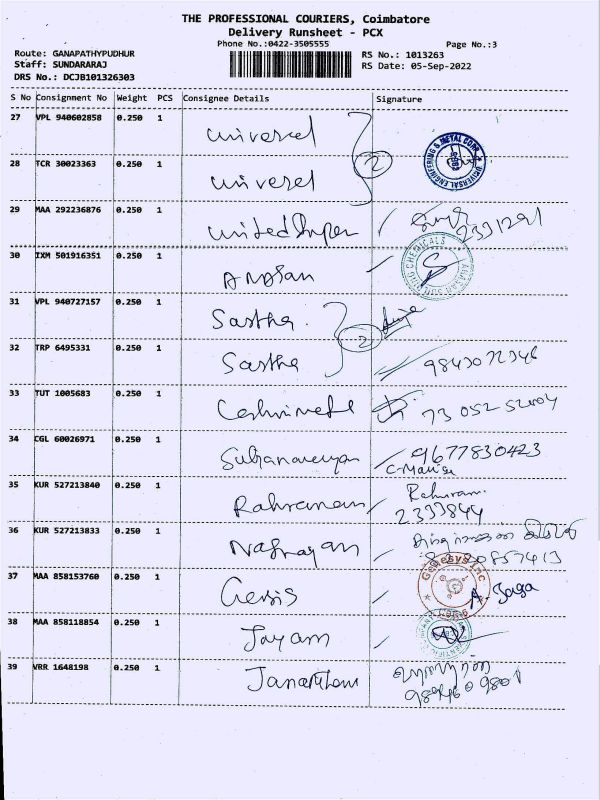 THE PROFESSIONAL COURIERS, Coimbatore
Delivery Runsheet - PCX
Phone No.:0422-3505555 Page No.:3
Route: GANAPATHYPUDHUR RS No.: 1013263
Staff: SUNDARARAJ RS Date: 05-Sep-2022
DRS No.: DCJB101326303
S No Consignment No Weight PCS Consignee Details Signature
27 VPL 940602858 0.250 1 Universel
2
UNIVERSAL ENGINEERING & METAL CORP.
28 TCR 30023363 0.250 1 Universel
29 MAA 292236876 0.250 1 United 2331291
30 IXM 501916351 0.250 1
CHEMICALS
31 VPL 940727157 0.250 1 Sastha
2
32 TRP 6495331 0.250 1 Sastha 9843072346
33 TUT 1005683 0.250 1 73052 52004
34 CGL 60026971 0.250 1 9677830423
35 KUR 527213840 0.250 1 Rahuram
2333844
36 KUR 527213833 0.250 1
37 MAA 858153760 0.250 1 A. Jaga
Genesys Inc
38 MAA 858118854 0.250 1 Jayam
39 VRR 1648198 0.250 1